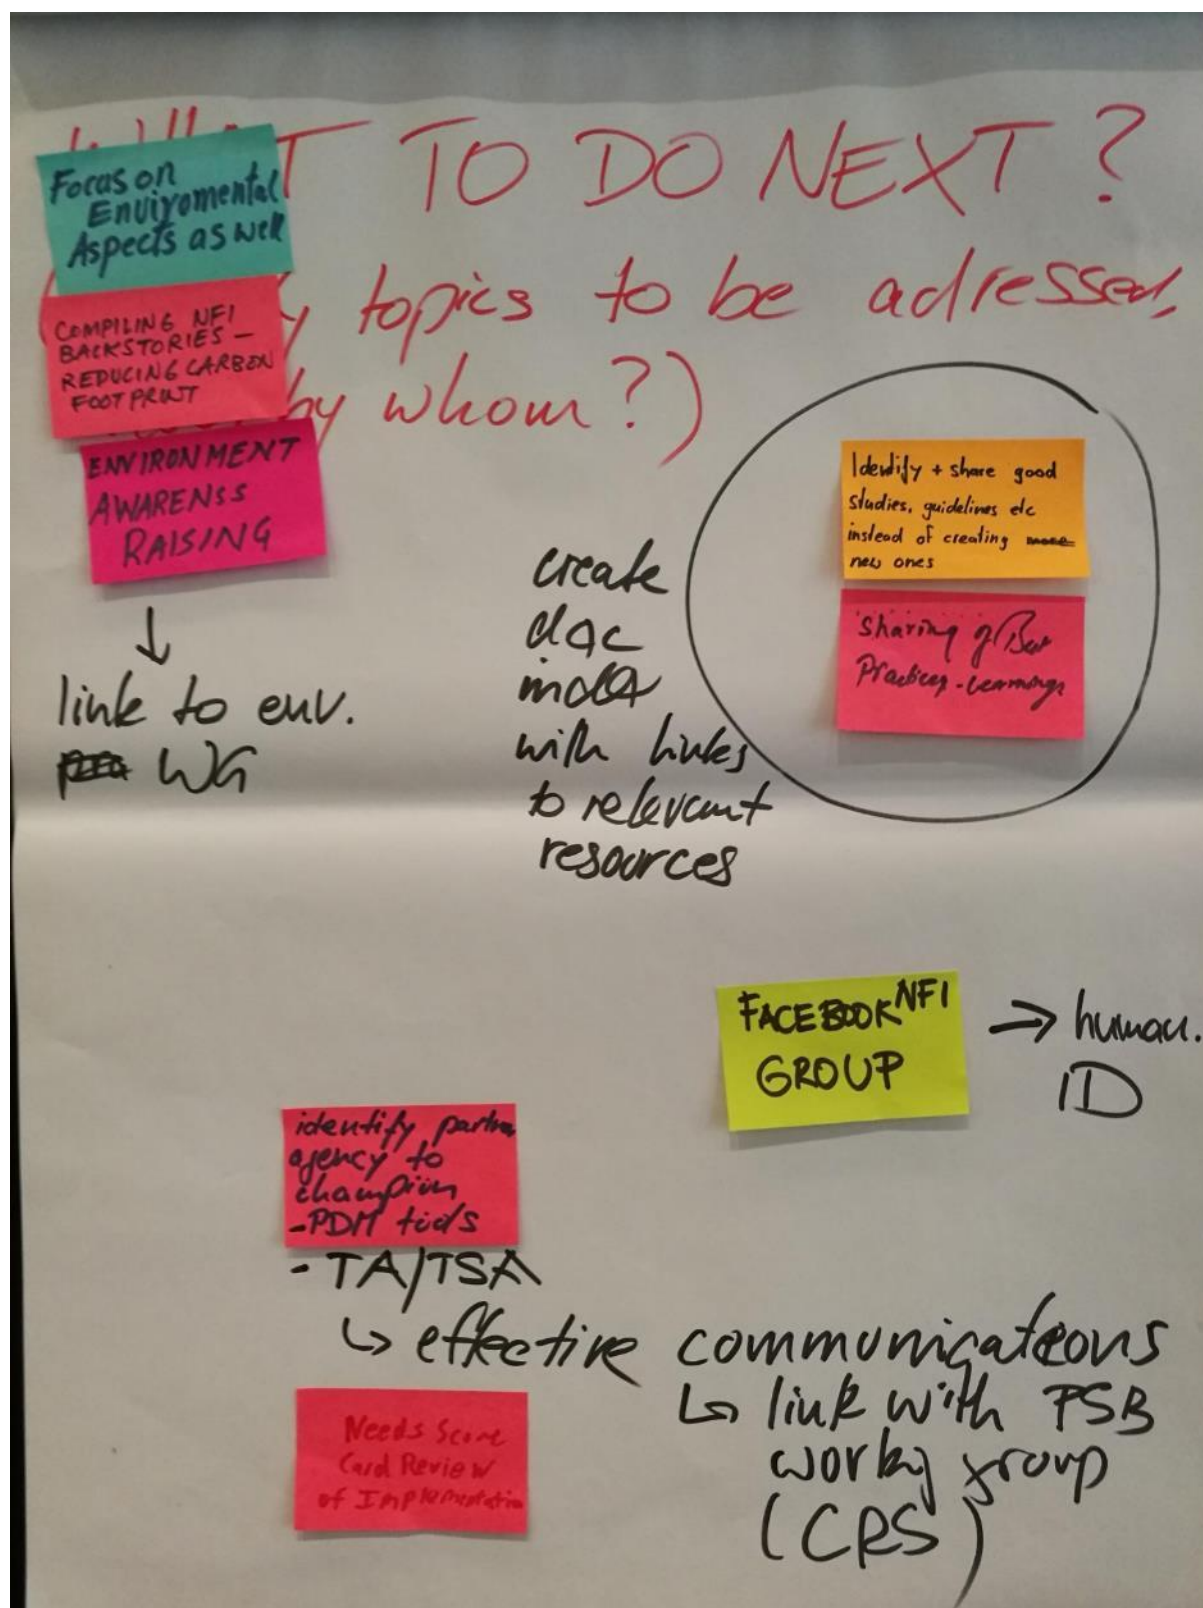 WHAT TO DO NEXT?
topics to be adressed,
by whom?)
Focus on
Enviromental
Aspects as well
COMPILING NFI
BACKSTORIES –
REDUCING CARBON
FOOTPRINT
ENVIRONMENT
AWARENSS
RAISING
↓
link to env.
WG
Identify + share good
studies, guidelines etc
instead of creating more
new ones
Sharing of Best
Practices - Learnings
create
doc
with links
to relevant
resources
FACEBOOK NFI
GROUP
→ human.
ID
identify partner
agency to
champion
- PDM tools
- TA/TSA
↳ effective communications
↳ link with PSB
working group
(CRS)
Needs Score
Card Review
of Implementation